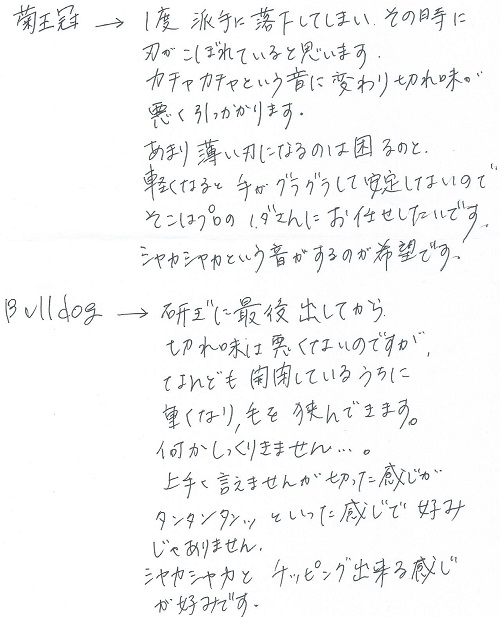 菊王冠 → 1度 派手に落下してしまい、その時に
刃がこぼれていると思います.
カチャカチャという音に変わり切れ味が
悪く引っかかります。
あまり薄い刃になるのは困るのと、
軽くなると手がグラグラして安定しないので
そこはプロの さんにお任せしたいです.
シャカシャカという音がするのが希望です。
Bulldog → 研ぎに最後出してから
切れ味は悪くないのですが,
なんども開閉しているうちに
重くなり,毛を挟んできます。
何かしっくりきません…。
上手く言えませんが切った感じが
タンタンタンッ といった感じで好み
じゃありません.
シャカシャカと チッピング出来る感じ
が好みです。